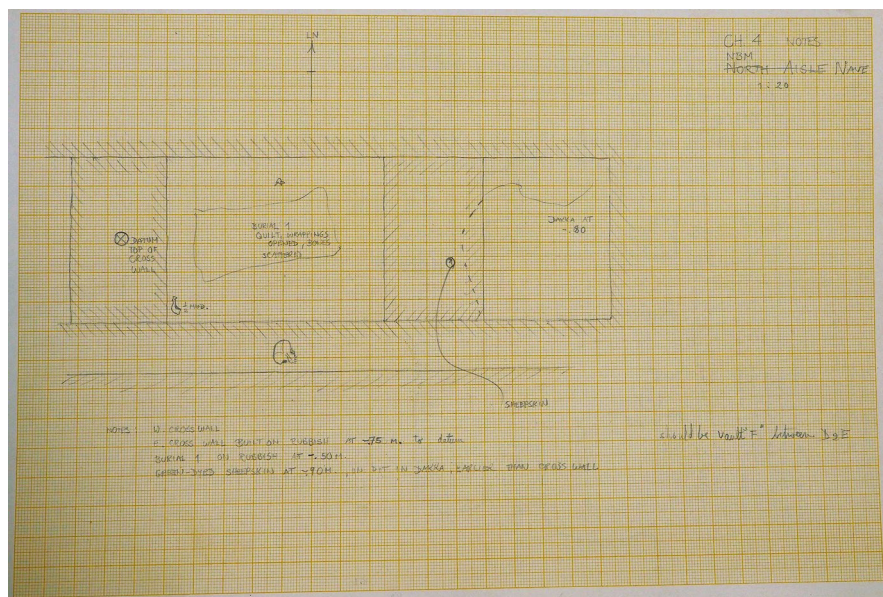 LN
CH 4 NOTES
NBM
NORTH AISLE NAVE
1:20
BURIAL 1
QUILT, WRAPPINGS
OPENED, BONES
SCATTERED
DAKKA AT
-.80
DATUM
TOP OF
CROSS
WALL
SHEEPSKIN
NOTES: W. CROSSWALL
E. CROSS WALL BUILT ON RUBBISH AT -.75 M. to datum
BURIAL 1 ON RUBBISH AT -.50 M.
GREEN-DYED SHEEPSKIN AT -.90M., IN PIT IN DAKKA, EARLIER THAN CROSS WALL
should be vault "F" between D & E